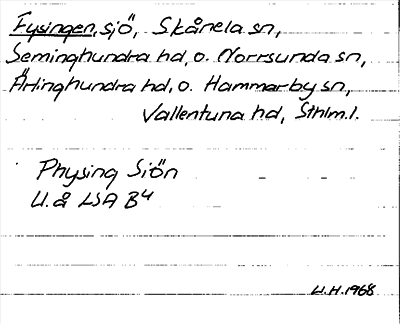 Fysingen, sjö, Skånela sn,
Seminghundra hd, o. Norrsunda sn,
Ärlinghundra hd, o. Hammarby sn,
Vallentuna hd, Sthlm.l.
Physing Siön
U.å LSA B4
U.H. 1968